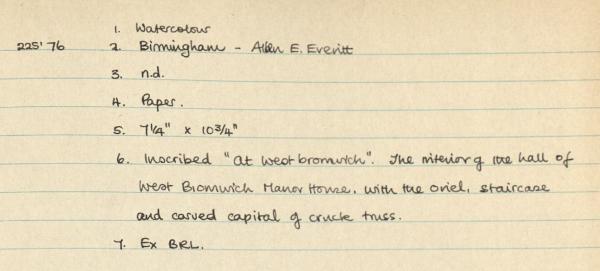 1. Watercolour
225'76 2. Birmingham - Allen E. Everitt
3. n.d.
4. Paper.
5. 7 1/4" x 10 3/4"
6. Inscribed "at West bromwich". The interior of the hall of
West Bromwich Manor House, with the oriel, staircase
and carved capital of cruck truss.
7. Ex BRL.